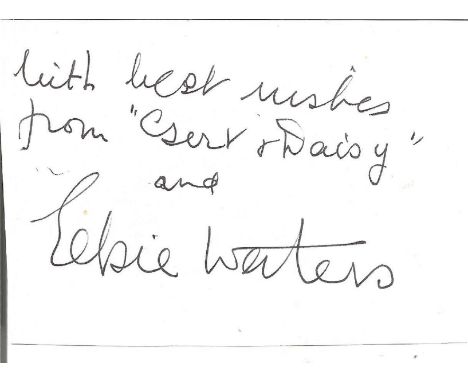 with best wishes
from "Gert & Daisy"
and
Elsie Waters